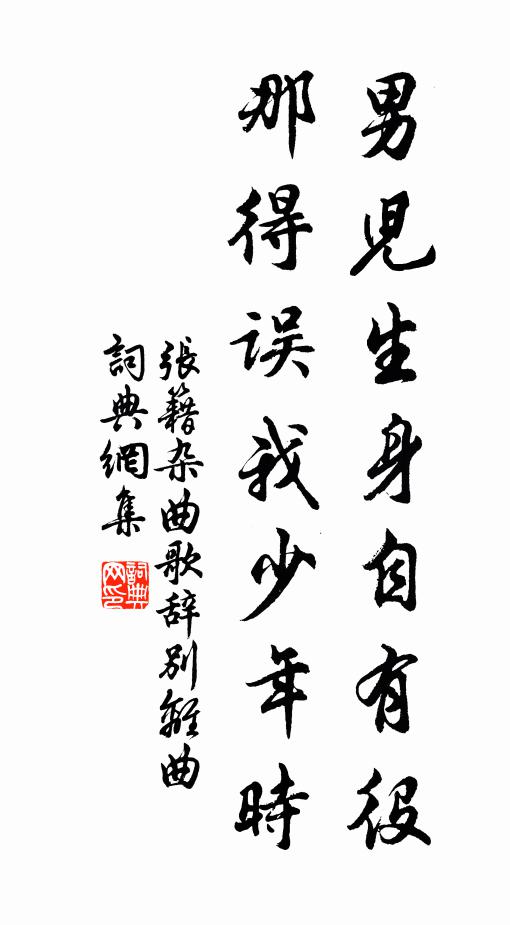 男兒生身自有役
那得误我少年時
張籍杂曲歌辞别離曲
詞典網集
詞典网印